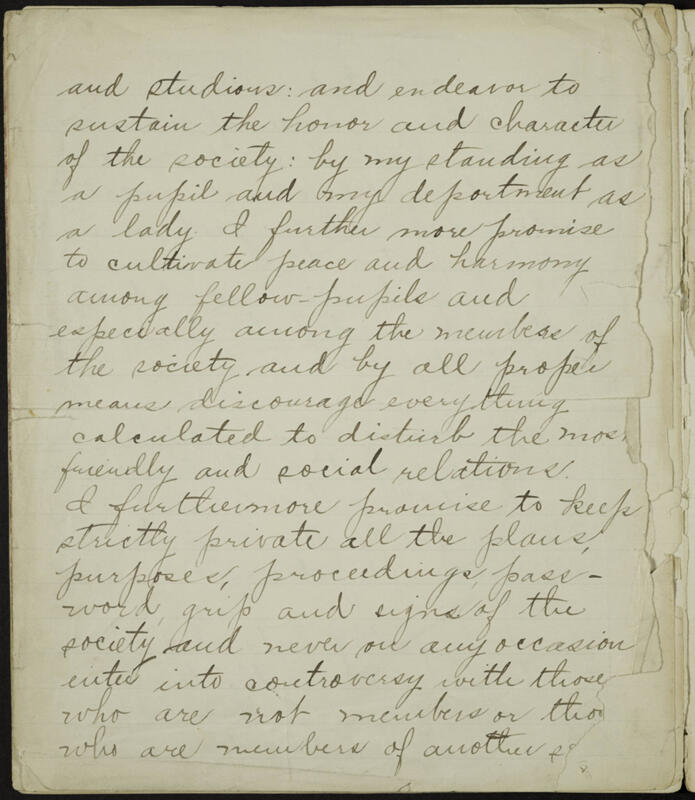 and studious: and endeavor to
sustain the honor and character
of the society: by my standing as
a pupil and my deportment as
a lady. I further more promise
to cultivate peace and harmony
among fellow-pupils and
especially among the members of
the society and by all proper
means discourage everything
calculated to disturb the mos
friendly and social relations.
I furthermore promise to keep
strictly private all the plans,
purposes, proceedings, pass-
word, grip and signs of the
society and never on any occasion
enter into controversy with those
who are not members or tho
who are members of another s